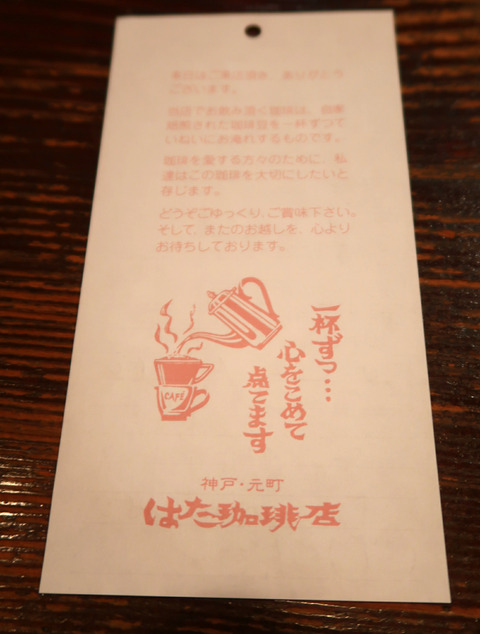 本日はご来店頂き ありがとう
ございます。
当店でお飲み頂く珈琲は、自家
焙煎された珈琲豆を一杯ずつて
いねいにお淹れするものです。
珈琲を愛する方々のために、私
達はこの珈琲を大切にしたいと
存じます。
どうぞごゆっくり、ご賞味下さい。
そして、またのお越しを、心より
お待ちしております。
一杯ずつ…
心をこめて
点てます
CAFÉ
神戸・元町
はた珈琲店